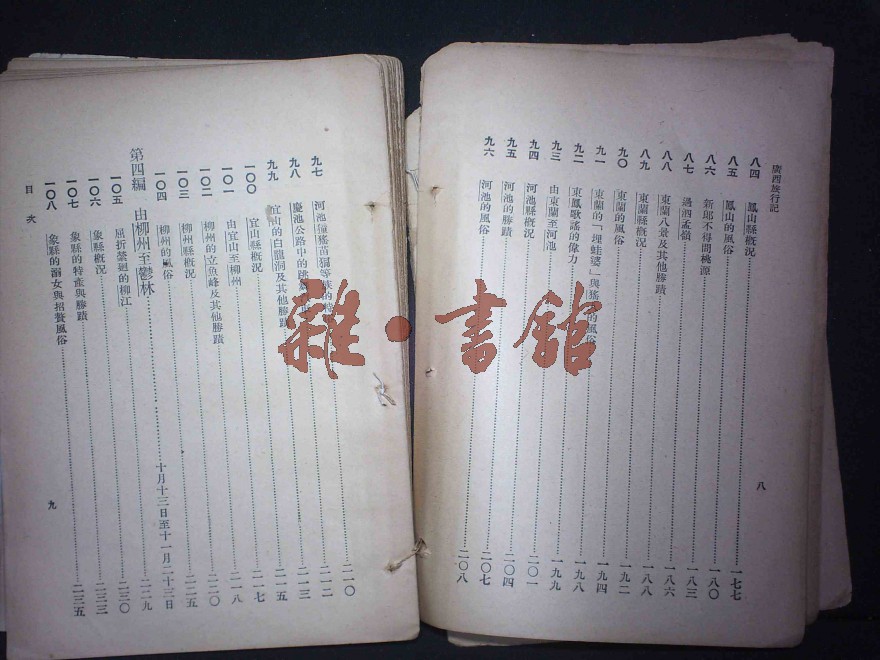 廣西旅行記
八四 鳳山縣概況 一七七
八五 鳳山的風俗 一八〇
八六 新郎不得問桃源
八七 過泗孟嶺 一八三
八八 東蘭八景及其他勝蹟 一八六
八九 東蘭縣概況 一八八
九〇 東蘭的風俗 一九二
九一 東蘭的「埋蛙婆」與的風俗 一九四
九二 東鳳歌謠的偉力 一九八
九三 由東蘭至河池 一九九
九四 河池縣概況 二〇一
九五 河池的勝蹟 二〇四
九六 河池的風俗 二〇七
二〇八
八
九七 河池苗等族的 二一〇
九八 慶池公路中的跳 二一二
九九 宜山的白龍洞及其他勝蹟 二一三
一〇〇 宜山縣概況 二一五
一〇一 由宜山至柳州 二一七
一〇二 柳州的立魚峰及其他勝蹟 二一八
一〇三 柳州縣概況 二一〇
一〇四 柳州的風俗
第四編 由柳州至鬱林 十月十三日至十一月二十三日
一〇五 屈折縈廻的柳江 二二九
一〇六 象縣概況 二三〇
一〇七 象縣的特產與勝蹟 二三三
一〇八 象縣的溺女與招贅風俗 二三五
目次
九
雜·書館